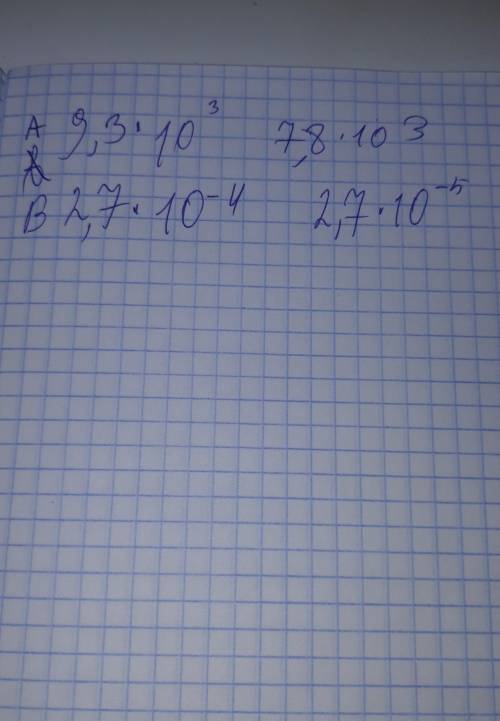 А 9,3·10³ 7,8·10 3
В 2,7·10⁻⁴ 2,7·10⁻⁵